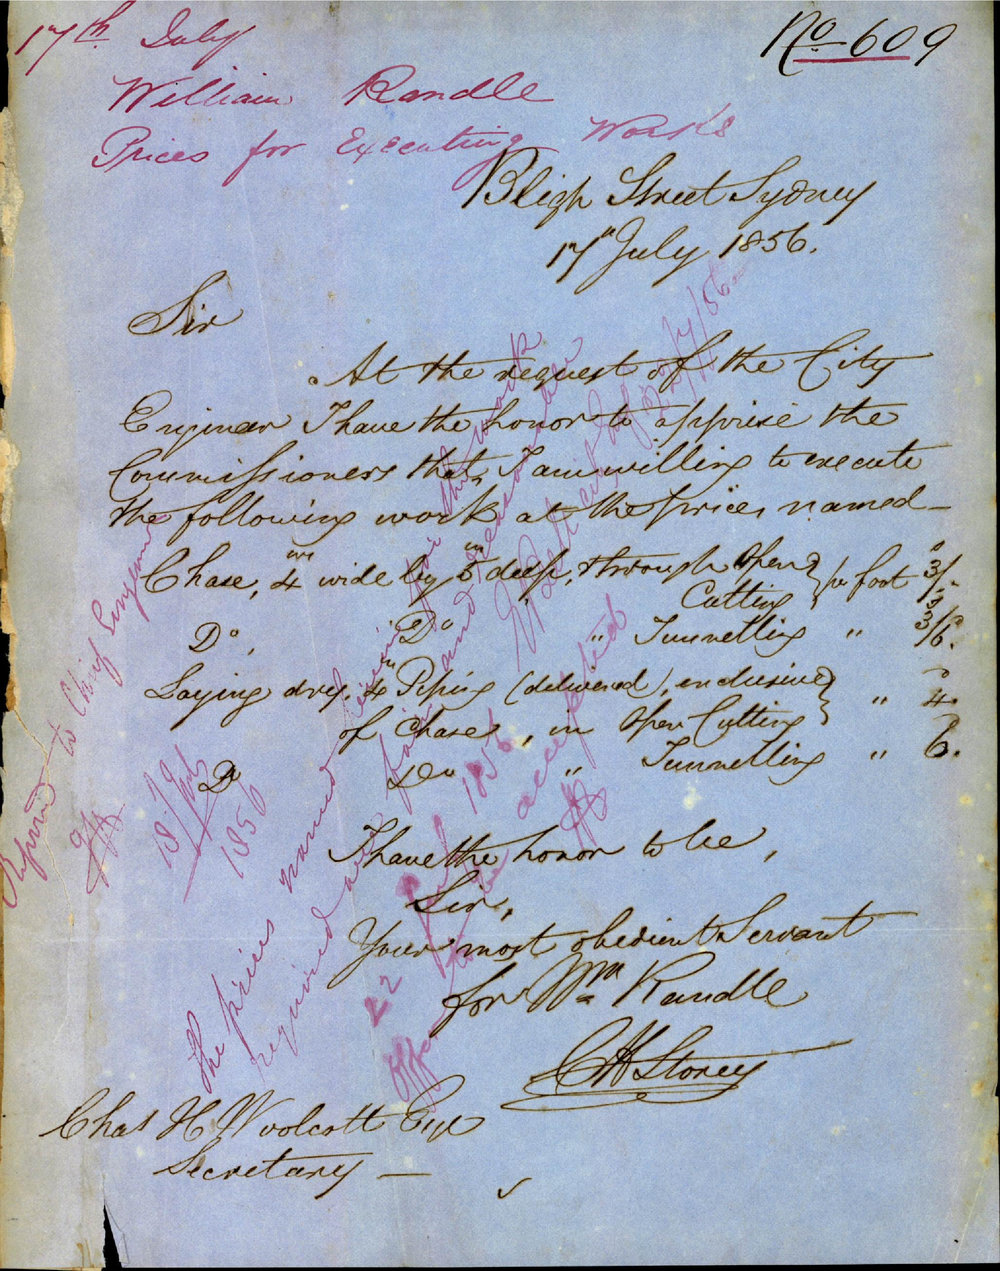 17th July
No 609
William Randle
Prices for Executing Works
Bligh Street Sydney
17th July 1856.
Sir
At the request of the City
Engineer I have the honor to apprise the
Commissioners that, I am willing to execute
the following work at the prices named—
Chase, 4 ins wide by 5 ins deep, through Open } pr foot 3/-
Cutting
Do, Do " Tunnelling " 3/6.
Laying dry, 4 in Piping (delivered), exclusive } " 4.
of Chase, in Open Cutting
Do Do " Tunnelling " 6.
I have the honor to be,
Sir,
Your most obedient Servant
for Wm Randle
C H Storey
Chas H Woolcott Esqr
Secretary —
Report to Chief Engineer
18 July
1856
The prices named herein for the work
required are fair and reasonable
22/7/56
22 July 1856
Offer to be accepted